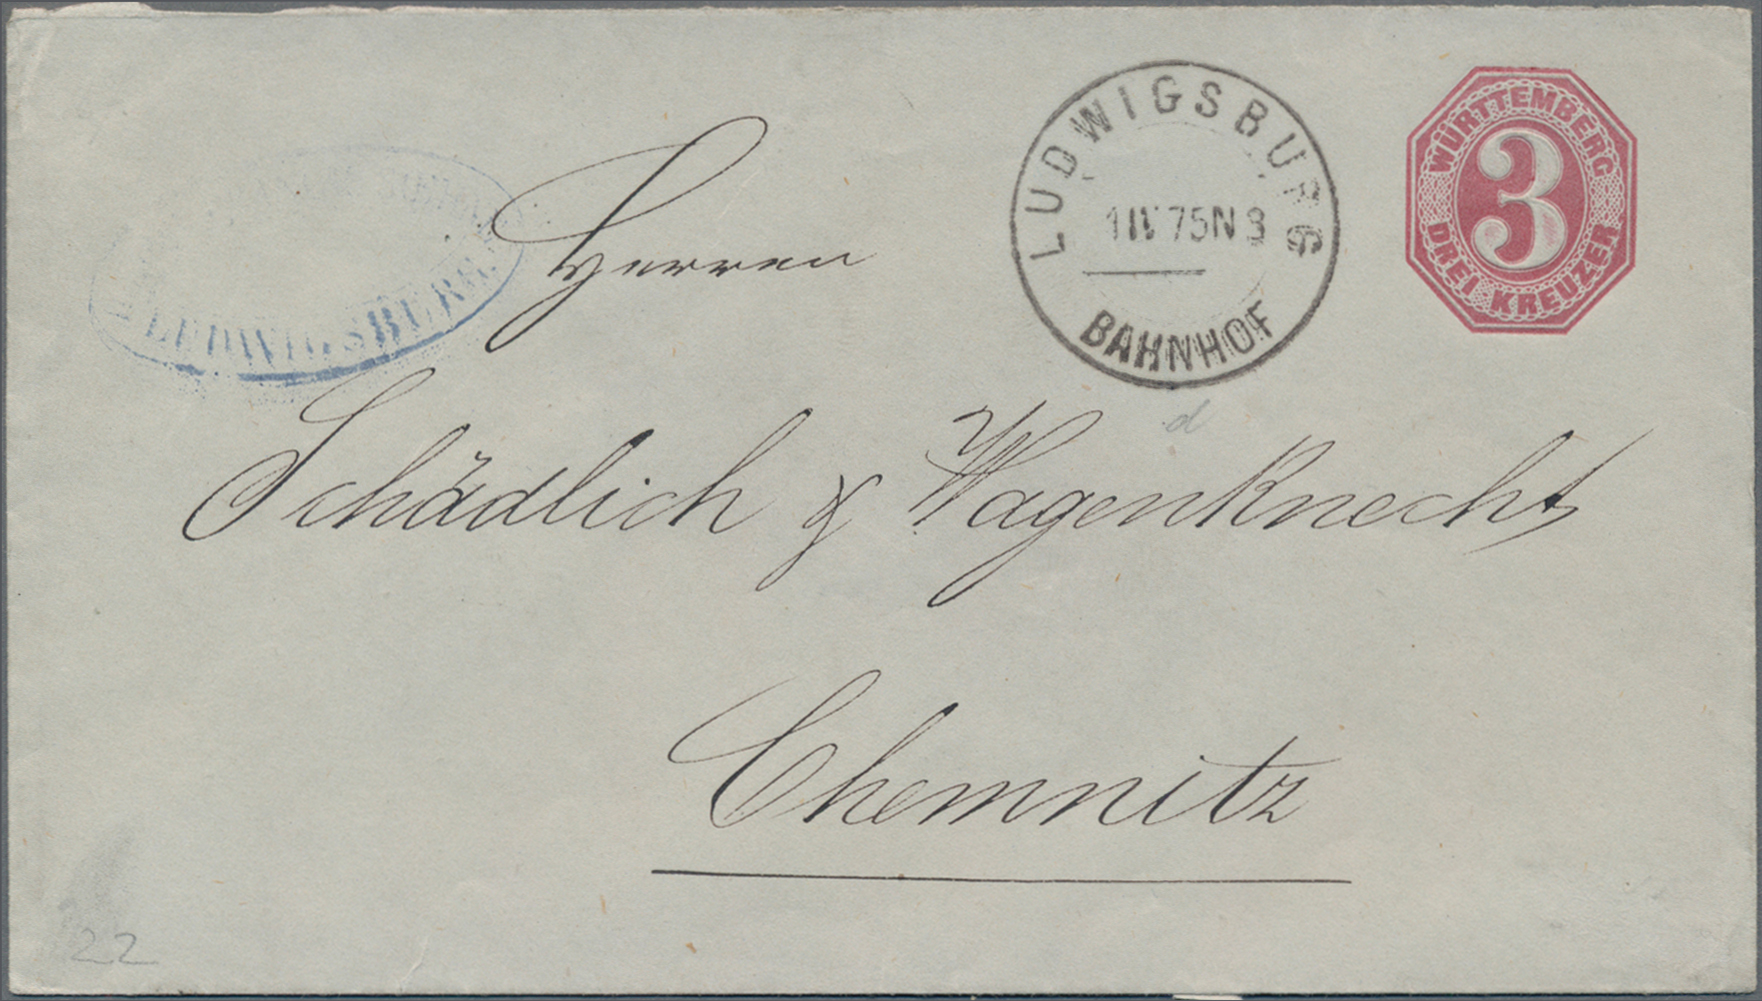 WÜRTTEMBERG
3
DREI KREUZER
LUDWIGSBURG
1 IV 75 N 3
BAHNHOF
LUDWIGSBURG
Herren
Schädlich & Wagenknecht
Chemnitz
d
22